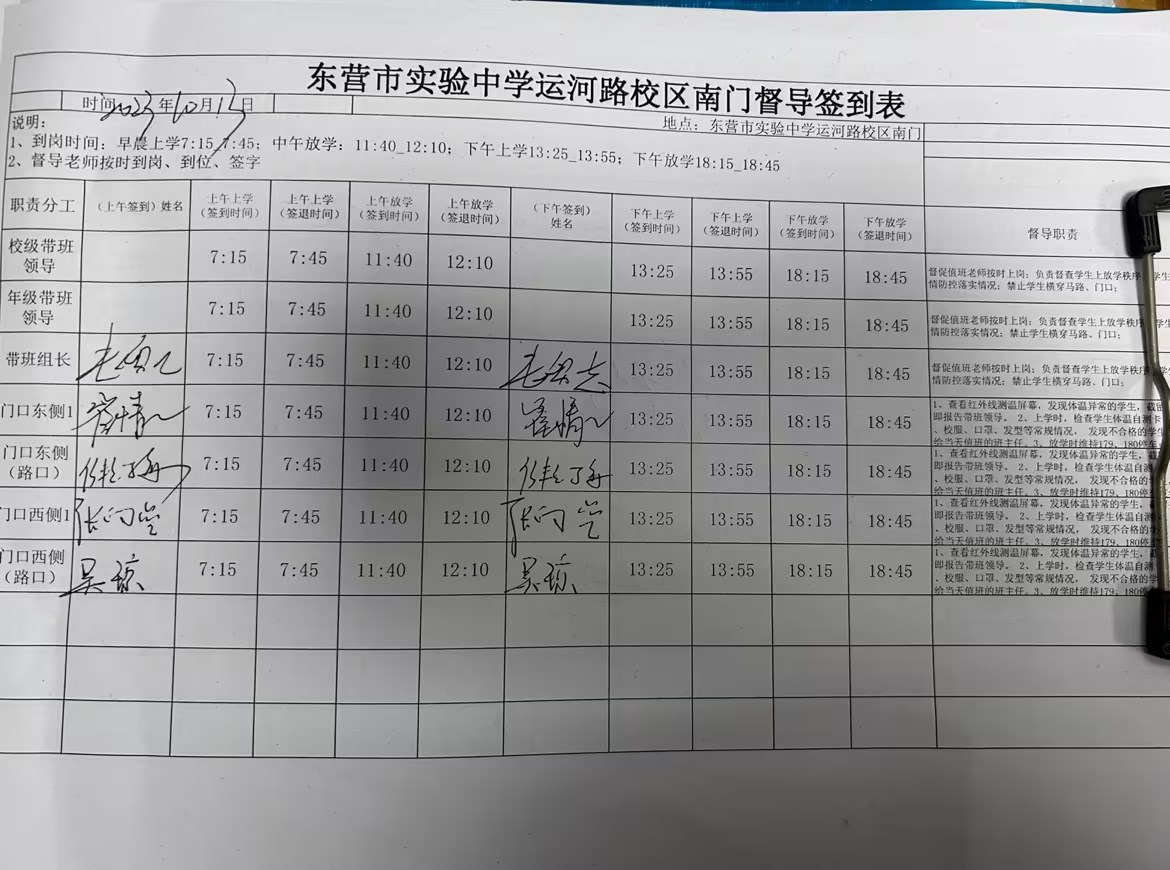 东营市实验中学运河路校区南门督导签到表
时间2023年10月13日
地点：东营市实验中学运河路校区南门
说明：
1、到岗时间：早晨上学7:15_7:45；中午放学：11:40_12:10；下午上学13:25_13:55；下午放学18:15_18:45
2、督导老师按时到岗、到位、签字
职责分工 （上午签到）姓名 上午上学（签到时间） 上午上学（签退时间） 上午放学（签到时间） 上午放学（签退时间） （下午签到）姓名 下午上学（签到时间） 下午上学（签退时间） 下午放学（签到时间） 下午放学（签退时间） 督导职责
校级带班领导 7:15 7:45 11:40 12:10 13:25 13:55 18:15 18:45
督促值班老师按时上岗；负责督查学生上放学秩序
情防控落实情况；禁止学生横穿马路、门口；
年级带班领导 7:15 7:45 11:40 12:10 13:25 13:55 18:15 18:45
督促值班老师按时上岗；负责督查学生上放学秩序
情防控落实情况；禁止学生横穿马路、门口；
带班组长 7:15 7:45 11:40 12:10 13:25 13:55 18:15 18:45
督促值班老师按时上岗；负责督查学生上放学秩序
情防控落实情况；禁止学生横穿马路、门口；
门口东侧1 7:15 7:45 11:40 12:10 13:25 13:55 18:15 18:45
1、查看红外线测温屏幕，发现体温异常的学生，截留
即报告带班领导。 2、上学时，检查学生体温自测卡
、校服、口罩、发型等常规情况， 发现不合格的学生
给当天值班的班主任。3、放学时维持179、180停车
门口东侧（路口） 7:15 7:45 11:40 12:10 13:25 13:55 18:15 18:45
1、查看红外线测温屏幕，发现体温异常的学生，截
即报告带班领导。 2、上学时，检查学生体温自测
、校服、口罩、发型等常规情况， 发现不合格的学
给当天值班的班主任。3、放学时维持179、180停
门口西侧1 7:15 7:45 11:40 12:10 13:25 13:55 18:15 18:45
1、查看红外线测温屏幕，发现体温异常的学生，
即报告带班领导。 2、上学时，检查学生体温自测
、校服、口罩、发型等常规情况， 发现不合格的学
给当天值班的班主任。3、放学时维持179、180停
门口西侧（路口） 吴琼 7:15 7:45 11:40 12:10 吴琼 13:25 13:55 18:15 18:45
1、查看红外线测温屏幕，发现体温异常的学生，
即报告带班领导。 2、上学时，检查学生体温自测
、校服、口罩、发型等常规情况， 发现不合格的学
给当天值班的班主任。3、放学时维持179、180停